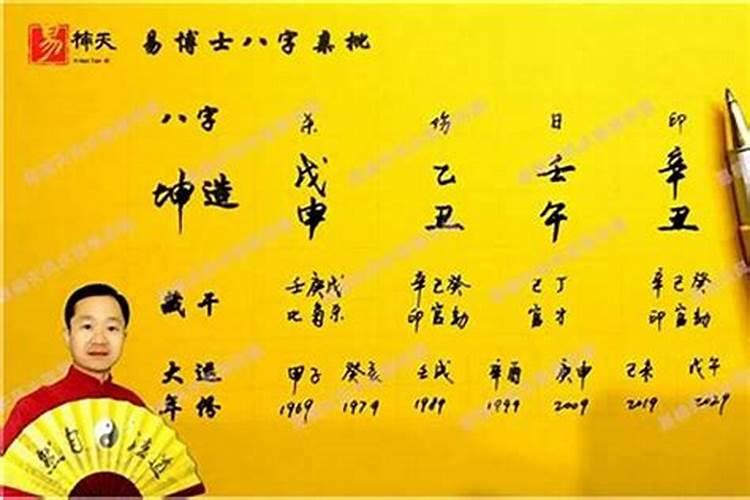 易 補天 易博士八字集批
八字 杀 伤 日 印
坤造 戊 乙 壬 辛
申 丑 午 丑
藏干 壬庚戊 辛己癸 己丁 辛己癸
比枭杀 印官劫 官才 印官劫
大运 甲子 癸亥 壬戌 辛酉 庚申 己未 戊午
年份 1969 1979 1989 1999 2009 2019 2029
然自法道